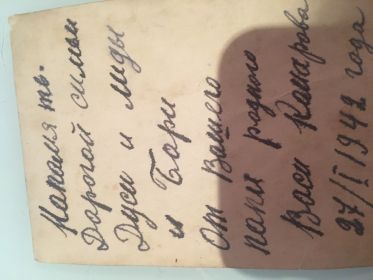 На память.
Дорогой симьи
Дуси и лиды
и Бори
От Вашего
папи родного
Васи Комарова
27/I 1942 года